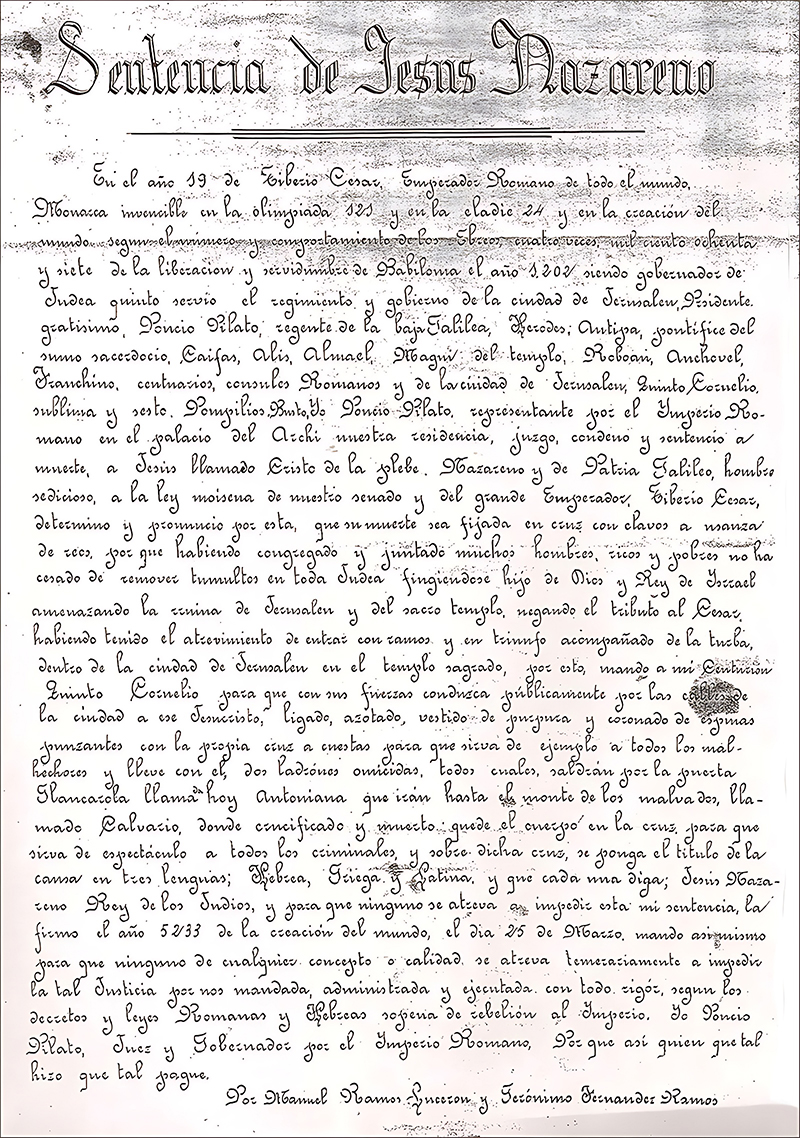 Sentencia de Jesus Nazareno
En el año 19 de Tiberio Cesar, Emperador Romano de todo el mundo.
Monarca invencible en la olimpiada 121 y en la eladie 24 y en la creación del
mundo, segun el número y comportamiento de los Ebreos, cuatro veces, mil ciento ochenta
y siete de la liberacion y servidumbre de Babilonia el año 1.202 siendo gobernador de
Judea quinto servio el regimiento y gobierno de la ciudad de Jerusalen, Prisidente.
gratisimo, Poncio Pilato, regente de la baja Galilea, Herodes; Antipa, pontífice del
sumo sacerdocio, Caifas, Alis, Almael, Magni del templo, Roboan, Anchovel,
Franchino, centuarios, consules Romanos y de la ciudad de Jerusalen, Quinto Cornelio,
sublima y sesto. Pompilios, Rusto, Yo Poncio Pilato, representante por el Imperio Ro-
mano en el palacio del Archi nuestra residencia, juzgo, condeno y sentencio a
muerte, a Jesús llamado Cristo de la plebe. Nazareno y de Patria Galileo, hombre
sedicioso, a la ley moisena de nuestro senado y del grande Emperador, Tiberio Cesar,
determino y pronuncio por esta, que su muerte sea fijada en cruz con clavos a usanza
de reos, por que habiendo congregado y juntado muchos hombres, ricos y pobres no ha
cesado de remover tumultos en toda Judea fingiendose hijo de Dios y Rey de Israel
amenazando la rruina de Jerusalen y del sacro templo, negando el tributo al Cesar,
habiendo tenido el atrevimiento de entrar con ramos y en triunfo acompañado de la turba,
dentro de la ciudad de Jerusalen en el templo sagrado, por esto, mando a mi Centurión
Quinto Cornelio para que con sus fuerzas conduzca públicamente por las calles de
la ciudad a ese Jesucristo, ligado, azotado, vestido de purpura y coronado de espinas
punzantes con la propia cruz a cuestas para que sirva de ejemplo a todos los mal-
hechores y lleve con el, dos ladrónes omicidas, todos cuales, saldrán por la puerta
Glancarola llamada hoy Antoniana que irán hasta el monte de los malvados, lla-
mado Calvario, donde crucificado y muerto quede el cuerpo en la cruz, para que
sirva de espectáculo a todos los criminales, y sobre dicha cruz, se ponga el titulo de la
causa en tres lenguas; Hebrea, Griega y Latina, y que cada una diga; Jesús Naza-
reno Rey de los Judios, y para que ninguno se atreva a impedir esta mi sentencia, la
firmo el año 5233 de la creación del mundo, el dia 25 de Marzo. mando asi mismo
para que ninguno de cualquier concepto o calidad se atreva temerariamente a impedir
la tal Justicia por nos mandada, administrada y ejecutada con todo rigór, segun los
decretos y leyes Romanas y Hebreas sopena de rebelión al Imperio. Yo Poncio
Pilato, Juez y Gobernador por el Imperio Romano, Por que así quien que tal
hizo que tal pague.
Por Manuel Ramos Luceron y Jerónimo Fernandez Ramos